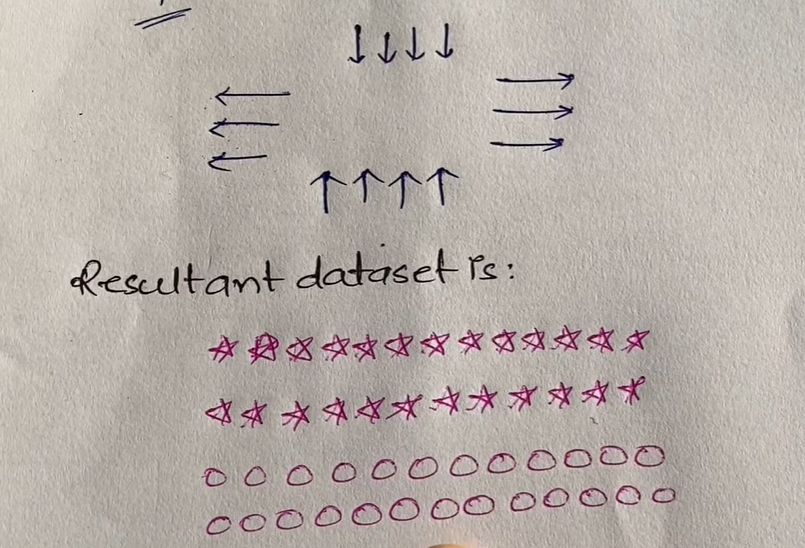 Resultant dataset is: